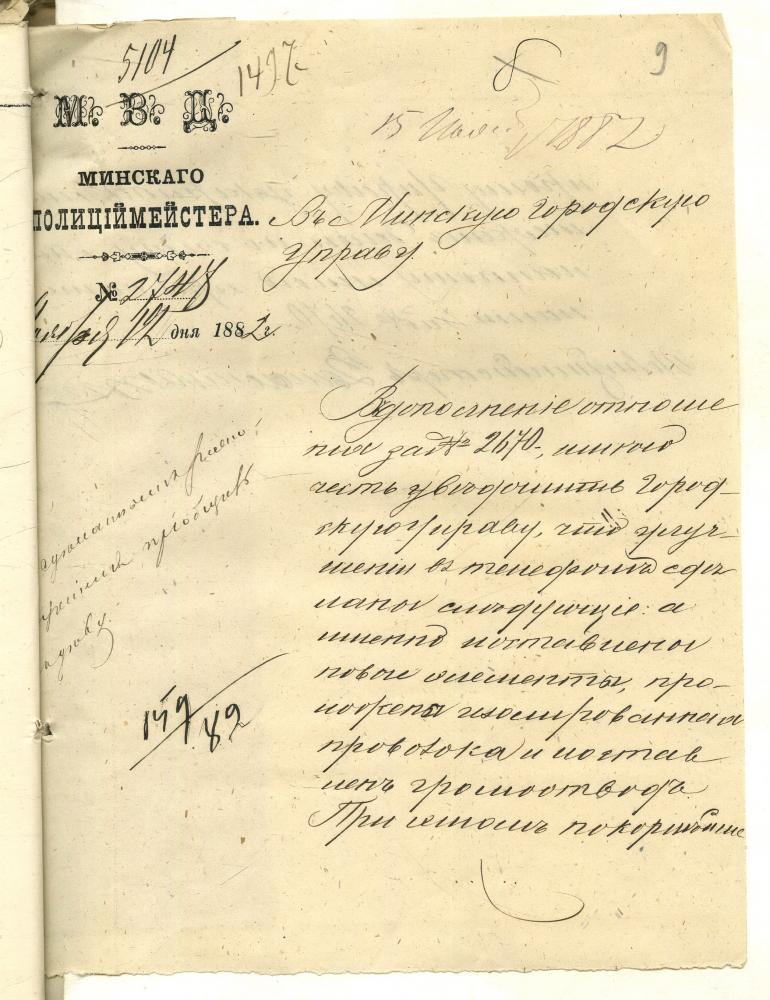 5104
1497
8
9
15 Июля 1882
М. В. Д.
МИНСКАГО
ПОЛИЦІЙМЕЙСТЕРА.
№ 2748
12 дня 1882 г.
Въ Минскую Городскую
Управу.
Въ дополненіе отноше
нія за № 2670, имѣю
честь увѣдомить Город-
скую Управу, что улуч-
шенія въ телефонѣ сдѣ
ланы слѣдующіе: а
именно поставлены
новые элементы, про-
ложена изолированная
проволока и постав
ленъ громоотводъ
При этомъ покорнѣйше
пріобщить
159/82